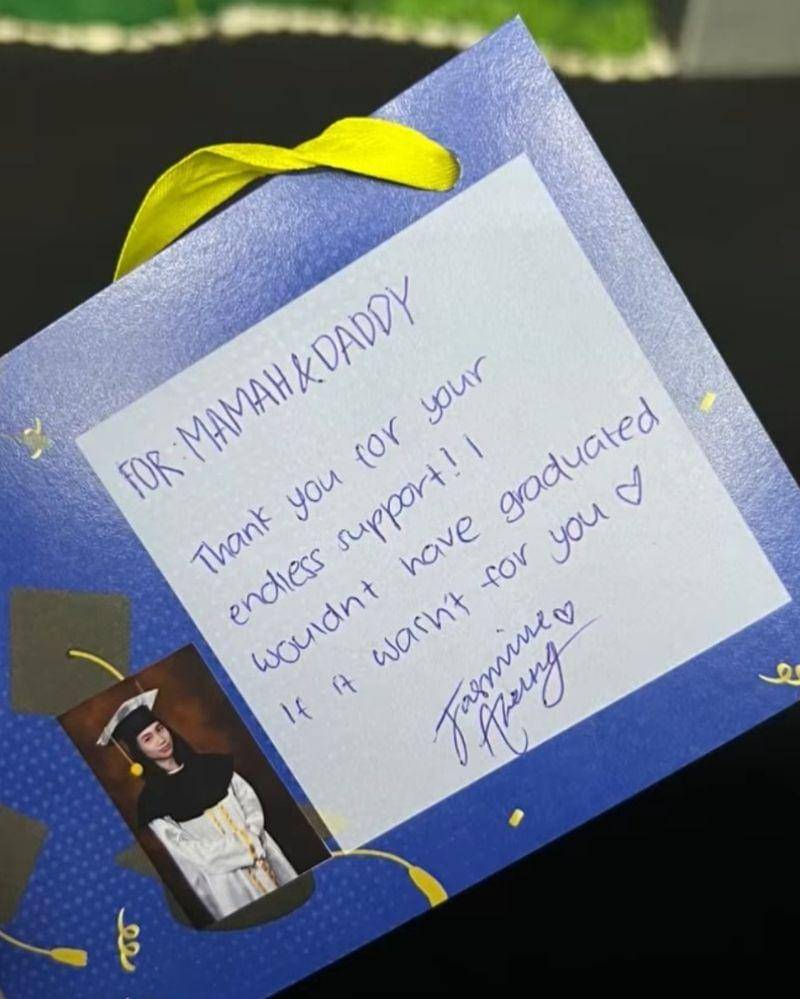 FOR: MAMAH & DADDY
Thank you for your
endless support!! I
wouldn't have graduated
If it wasn't for you ♡
Jasmine ♡